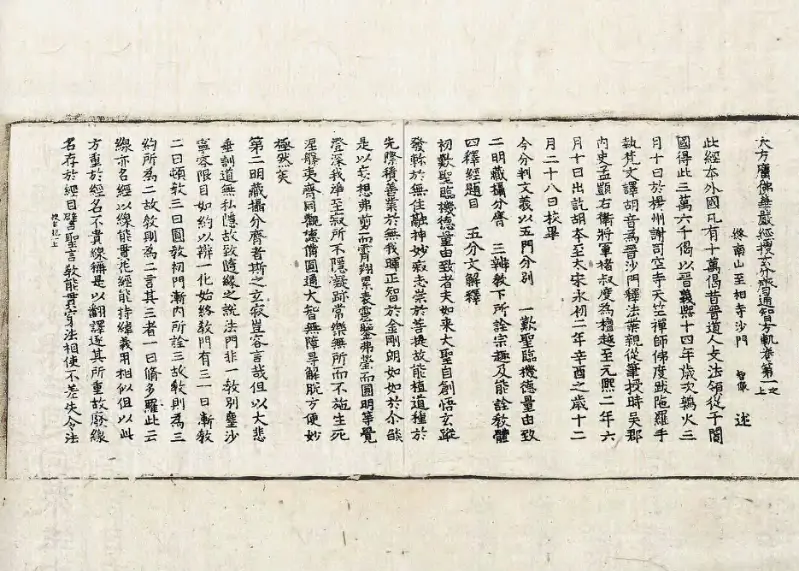 大方廣佛華嚴經搜玄分齊通智方軌卷第一之上
終南山至相寺沙門 智儼 述
此經本外國凡有十萬偈昔晉道人支法領從于闐
國得此三萬六千偈以晉義熙十四年歲次鶉火三
月十日於楊州謝司空寺天竺禪師佛度跋陁羅手
執梵文譯胡音為晉沙門釋法業親從筆授時吴郡
內史孟顗右衛將軍褚叔度為檀越至元熙二年六
月十日出訖胡本至大宋永初二年辛酉之歲十二
月二十八日校畢
今分判文義以五門分別 一歎聖臨機德量由致
二明藏攝分齊 三辨教下所詮宗趣及能詮教體
四釋經題目 五分文解釋
初歎聖臨機德量由致者夫如來大聖自創悟玄蹤
發軫於無住融神妙寂志崇於菩提故能植道種於
先際積善業於無我暉正智於金剛朗如如於尒𦦨
是以妄想弗剪而霄翔累表靈鑒弗瑩而圓明等覺
澄深我淨至寂所不隱凝跡常樂無所而不施生死
涅槃夷齊同觀德備圓通大智無障㝵解脫方便妙
極然矣
第二明藏攝分齊者斯之玄寂豈容言哉但以大悲
垂訓道無私隱故致隨緣之說法門非一教別塵沙
寧容限目如約以辯一化始終教門有三一曰漸教
二曰頓教三曰圓教初門漸內所詮三故教則為三
約所為二故教則為二言其三者一曰脩多羅此云
線亦名經以線能貫花經能持緯義用相似但以此
方重於經名不貴線稱是以翻譯逐其所重故廢線
名存於經目譬聖言教能貫穿法相使不差失令法